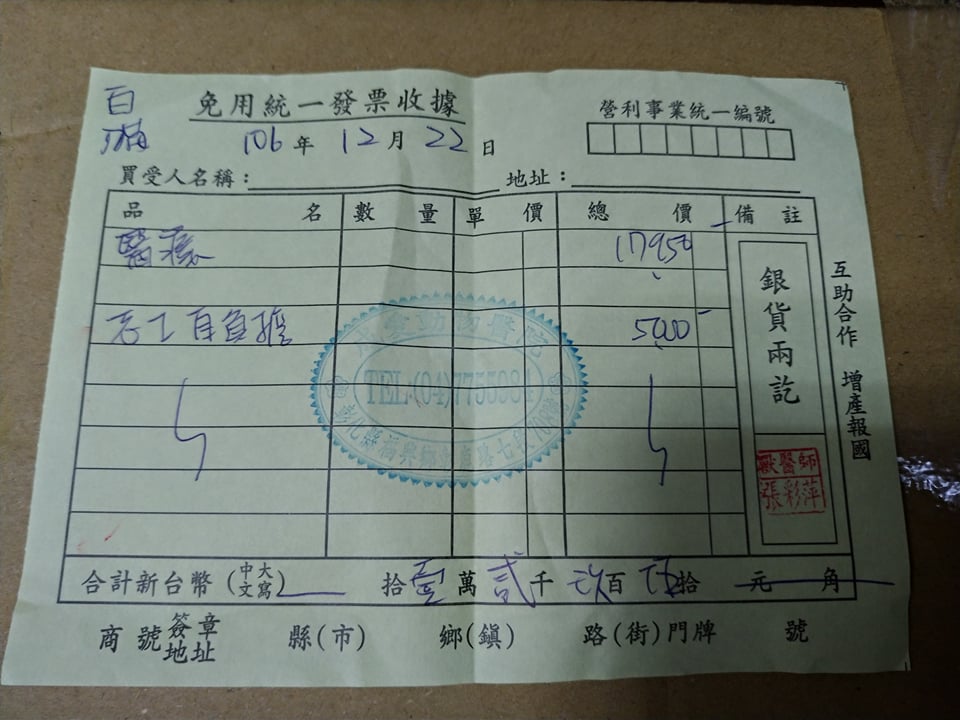 白
免用統一發票收據
營利事業統一編號
106年12月22日
買受人名稱：
地址：
品名 數量 單價 總價 備註
醫療 17950
志工自負擔 5000
銀貨兩訖
互助合作 增產報國
動物醫院
TEL:(04)7755984
彰化縣福興鄉
獸醫師
張彩萍
合計新台幣(中文大寫) 拾壹萬貳千玖百伍拾元角
商號簽章地址 縣(市) 鄉(鎮) 路(街)門牌 號